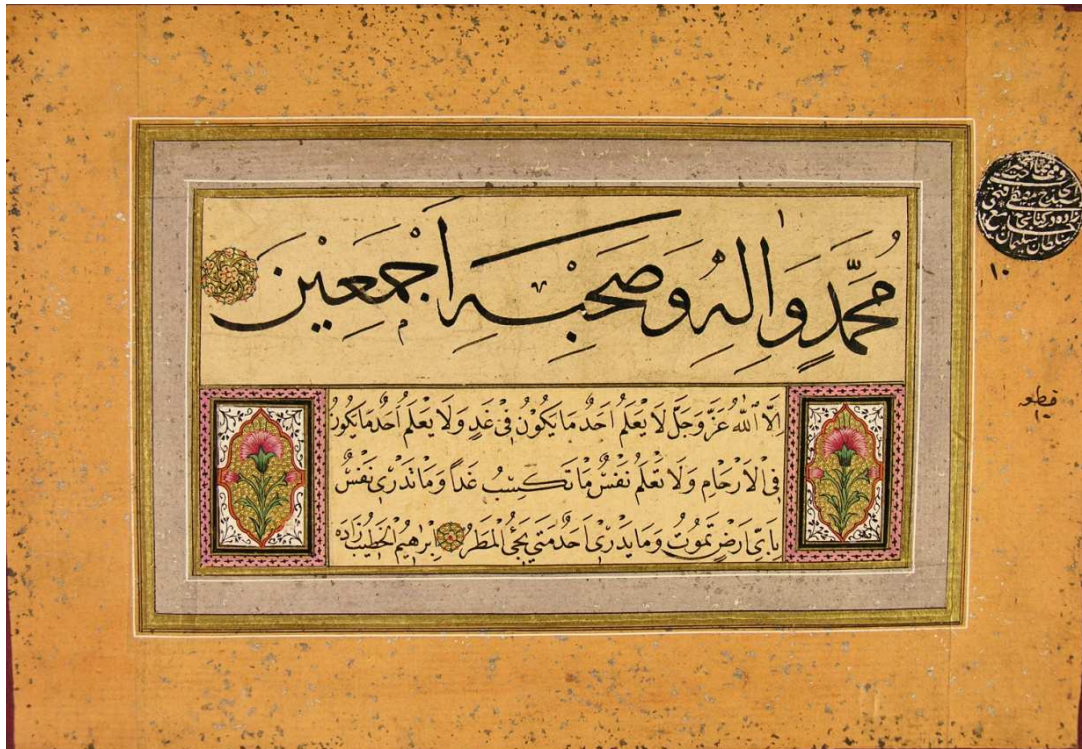 مُحَمَّدٍ وَاٰلِهِ وَصَحْبِهِ اَجْمَعِيْنَ
اِلَّا اللّٰهُ عَزَّ وَجَلَّ لَا يَعْلَمُ اَحَدٌ مَا يَكُوْنُ فِي غَدٍ وَلَا يَعْلَمُ اَحَدٌ مَا يَكُوْنُ
فِي الْاَرْحَامِ وَلَا تَعْلَمُ نَفْسٌ مَا تَكْسِبُ غَدًا وَمَا تَدْرِيْ نَفْسٌ
بِاَيِّ اَرْضٍ تَمُوْتُ وَمَا يَدْرِيْ اَحَدٌ مَتٰى يَجِيْءُ الْمَطَرُ اِبْرٰهِيْمُ الْخَطِيْبُ زَادَه
١٠
قطعه